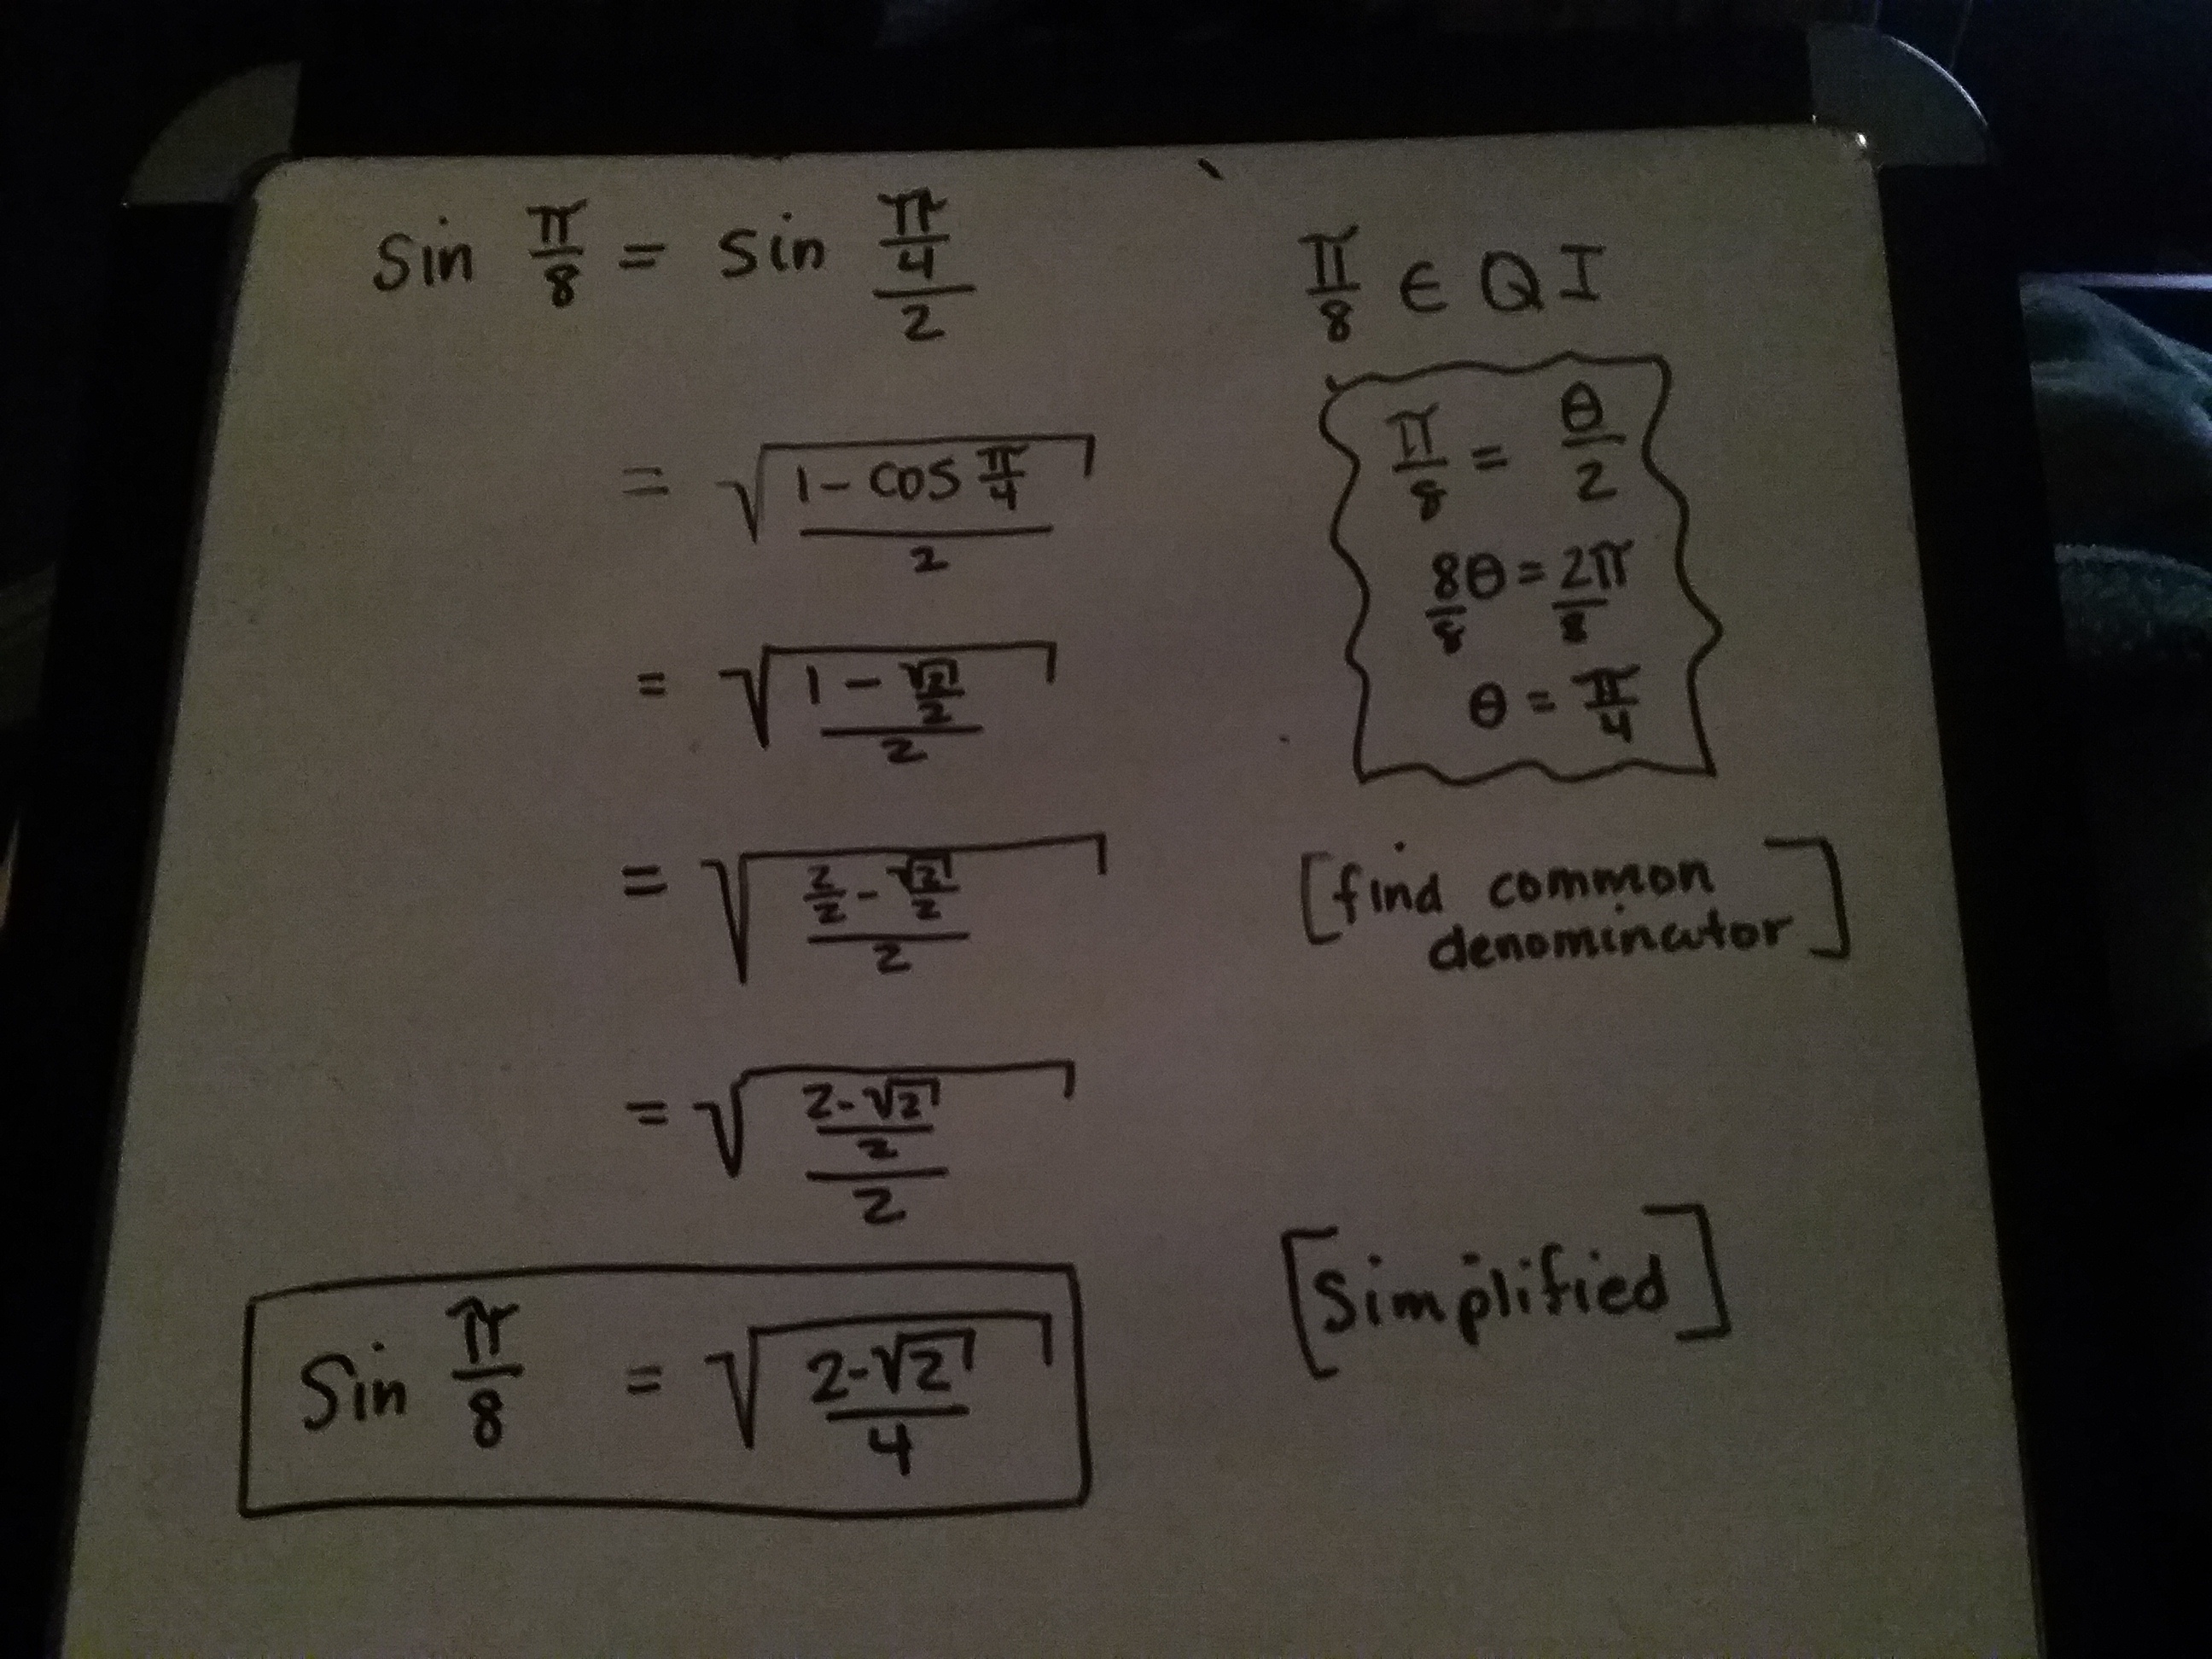 sin π/8 = sin (π/4)/2
π/8 ∈ Q I
= √((1 - cos π/4)/2)
π/8 = θ/2
8θ/8 = 2π/8
θ = π/4
= √((1 - √2/2)/2)
= √((2/2 - √2/2)/2)
[find common
denominator]
= √(((2-√2)/2)/2)
Sin π/8 = √((2-√2)/4)
[Simplified]